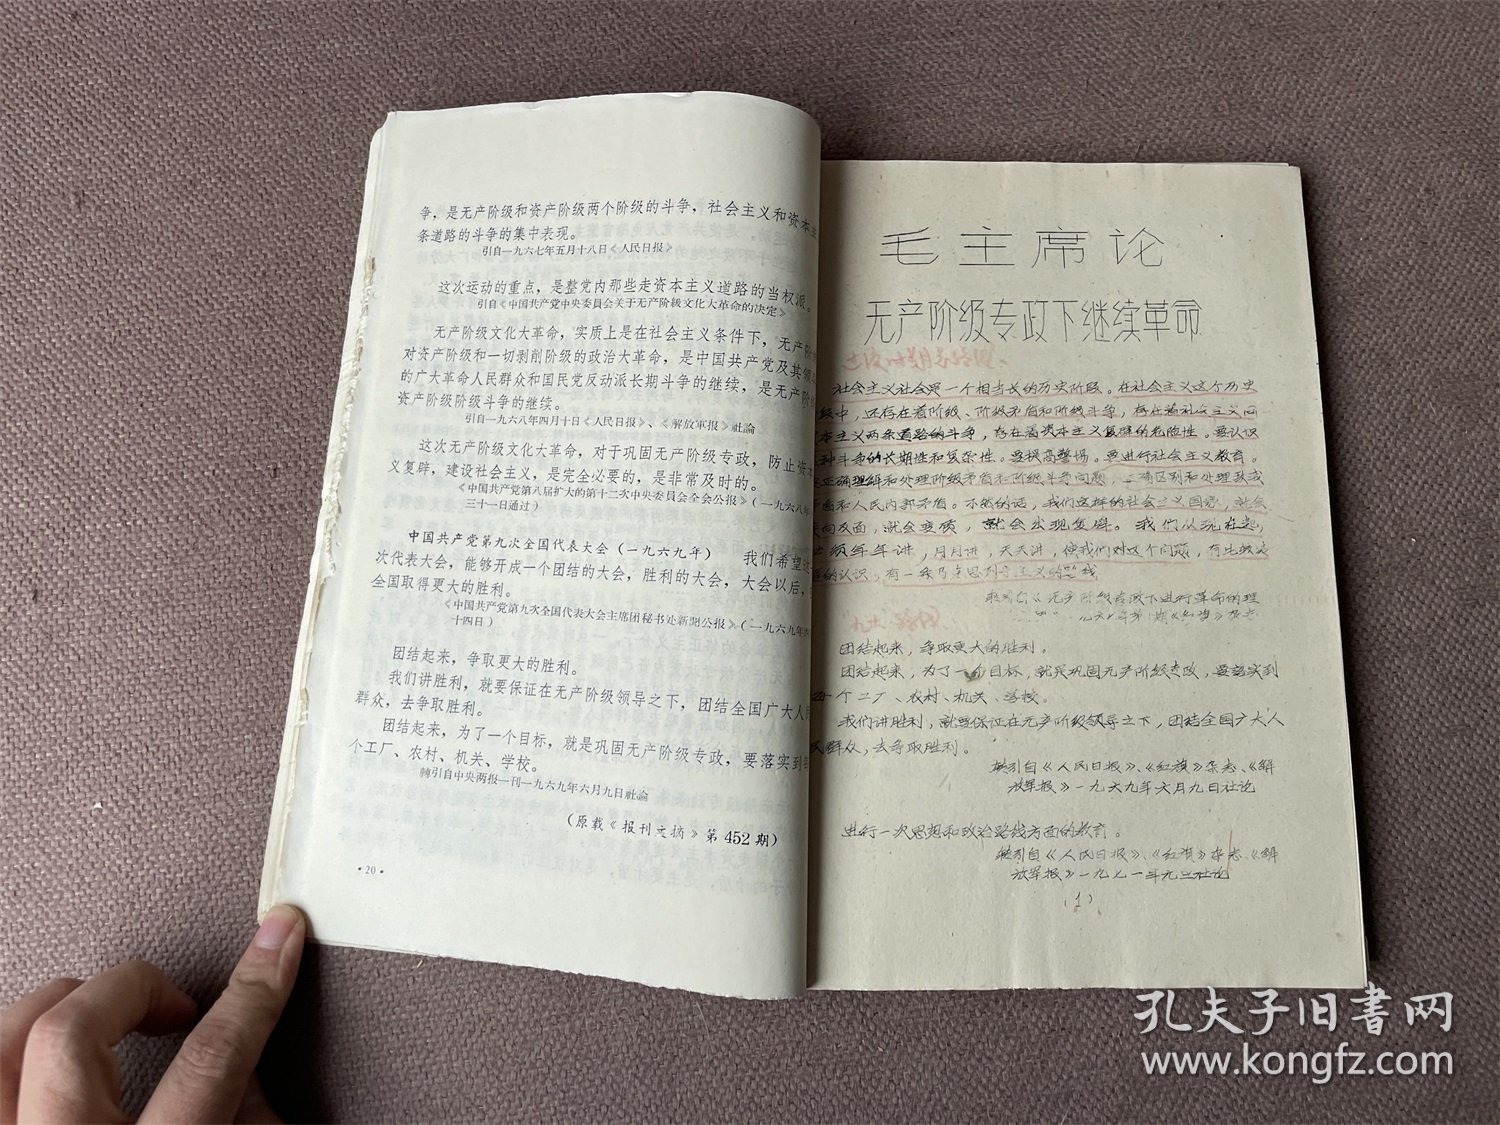 争，是无产阶级和资产阶级两个阶级的斗争，社会主义和资本主
条道路的斗争的集中表现。
引自一九六七年五月十八日《人民日报》
这次运动的重点，是整党内那些走资本主义道路的当权派。
引自《中国共产党中央委員会关于无产阶級文化大革命的决定》
无产阶级文化大革命，实质上是在社会主义条件下，无产阶
对资产阶级和一切剥削阶级的政治大革命，是中国共产党及其领
的广大革命人民群众和国民党反动派长期斗争的继续，是无产阶
资产阶级阶级斗争的继续。
引自一九六八年四月十日《人民日报》、《解放軍报》社論
这次无产阶级文化大革命，对于巩固无产阶级专政，防止资
义复辟，建设社会主义，是完全必要的，是非常及时的。
《中国共产党第八届扩大的第十二次中央委員会全会公报》（一九六八年
三十一日通过）
中国共产党第九次全国代表大会（一九六九年） 我们希望这
次代表大会，能够开成一个团结的大会，胜利的大会，大会以后，
全国取得更大的胜利。
《中国共产党第九次全国代表大会主席团秘书处新聞公报》（一九六九年
十四日）
团结起来，争取更大的胜利。
我们讲胜利，就要保证在无产阶级领导之下，团结全国广大人
群众，去争取胜利。
团结起来，为了一个目标，就是巩固无产阶级专政，要落实到
个工厂、农村、机关、学校。
轉引自中央两报一刊一九六九年六月九日社論
（原载《报刊文摘》第452期）
·20·
毛主席论
无产阶级专政下继续革命
社会主义社会是一个相当长的历史阶段。在社会主义这个历史
段中，还存在着阶级、阶级矛盾和阶级斗争，存在着社会主义同
本主义两条道路的斗争，存在着资本主义复辟的危险性。要认识
种斗争的长期性和复杂性。要提高警惕。要进行社会主义教育。
正确理解和处理阶级矛盾和阶级斗争问题，正确区别和处理敌我
盾和人民内部矛盾。不然的话，我们这样的社会主义国家，就会
向反面，就会变质，就会出现复辟。我们从现在起，
须年年讲，月月讲，天天讲，使我们对这个问题，有比较
的认识，有一条马克思列宁主义的路线
转引自《无产阶级专政下进行革命的理
《红旗》杂志
团结起来，争取更大的胜利。
团结起来，为了一个目标，就是巩固无产阶级专政，要落实到
每个工厂、农村、机关、学校。
我们讲胜利，就要保证在无产阶级领导之下，团结全国广大人
民群众，去争取胜利。
转引自《人民日报》、《红旗》杂志、《解
放军报》一九六九年六月九日社论
进行一次思想和政治路线方面的教育。
转引自《人民日报》、《红旗》杂志、《解
放军报》一九七一年元旦社论
（1）
孔夫子旧书网
www.kongfz.com